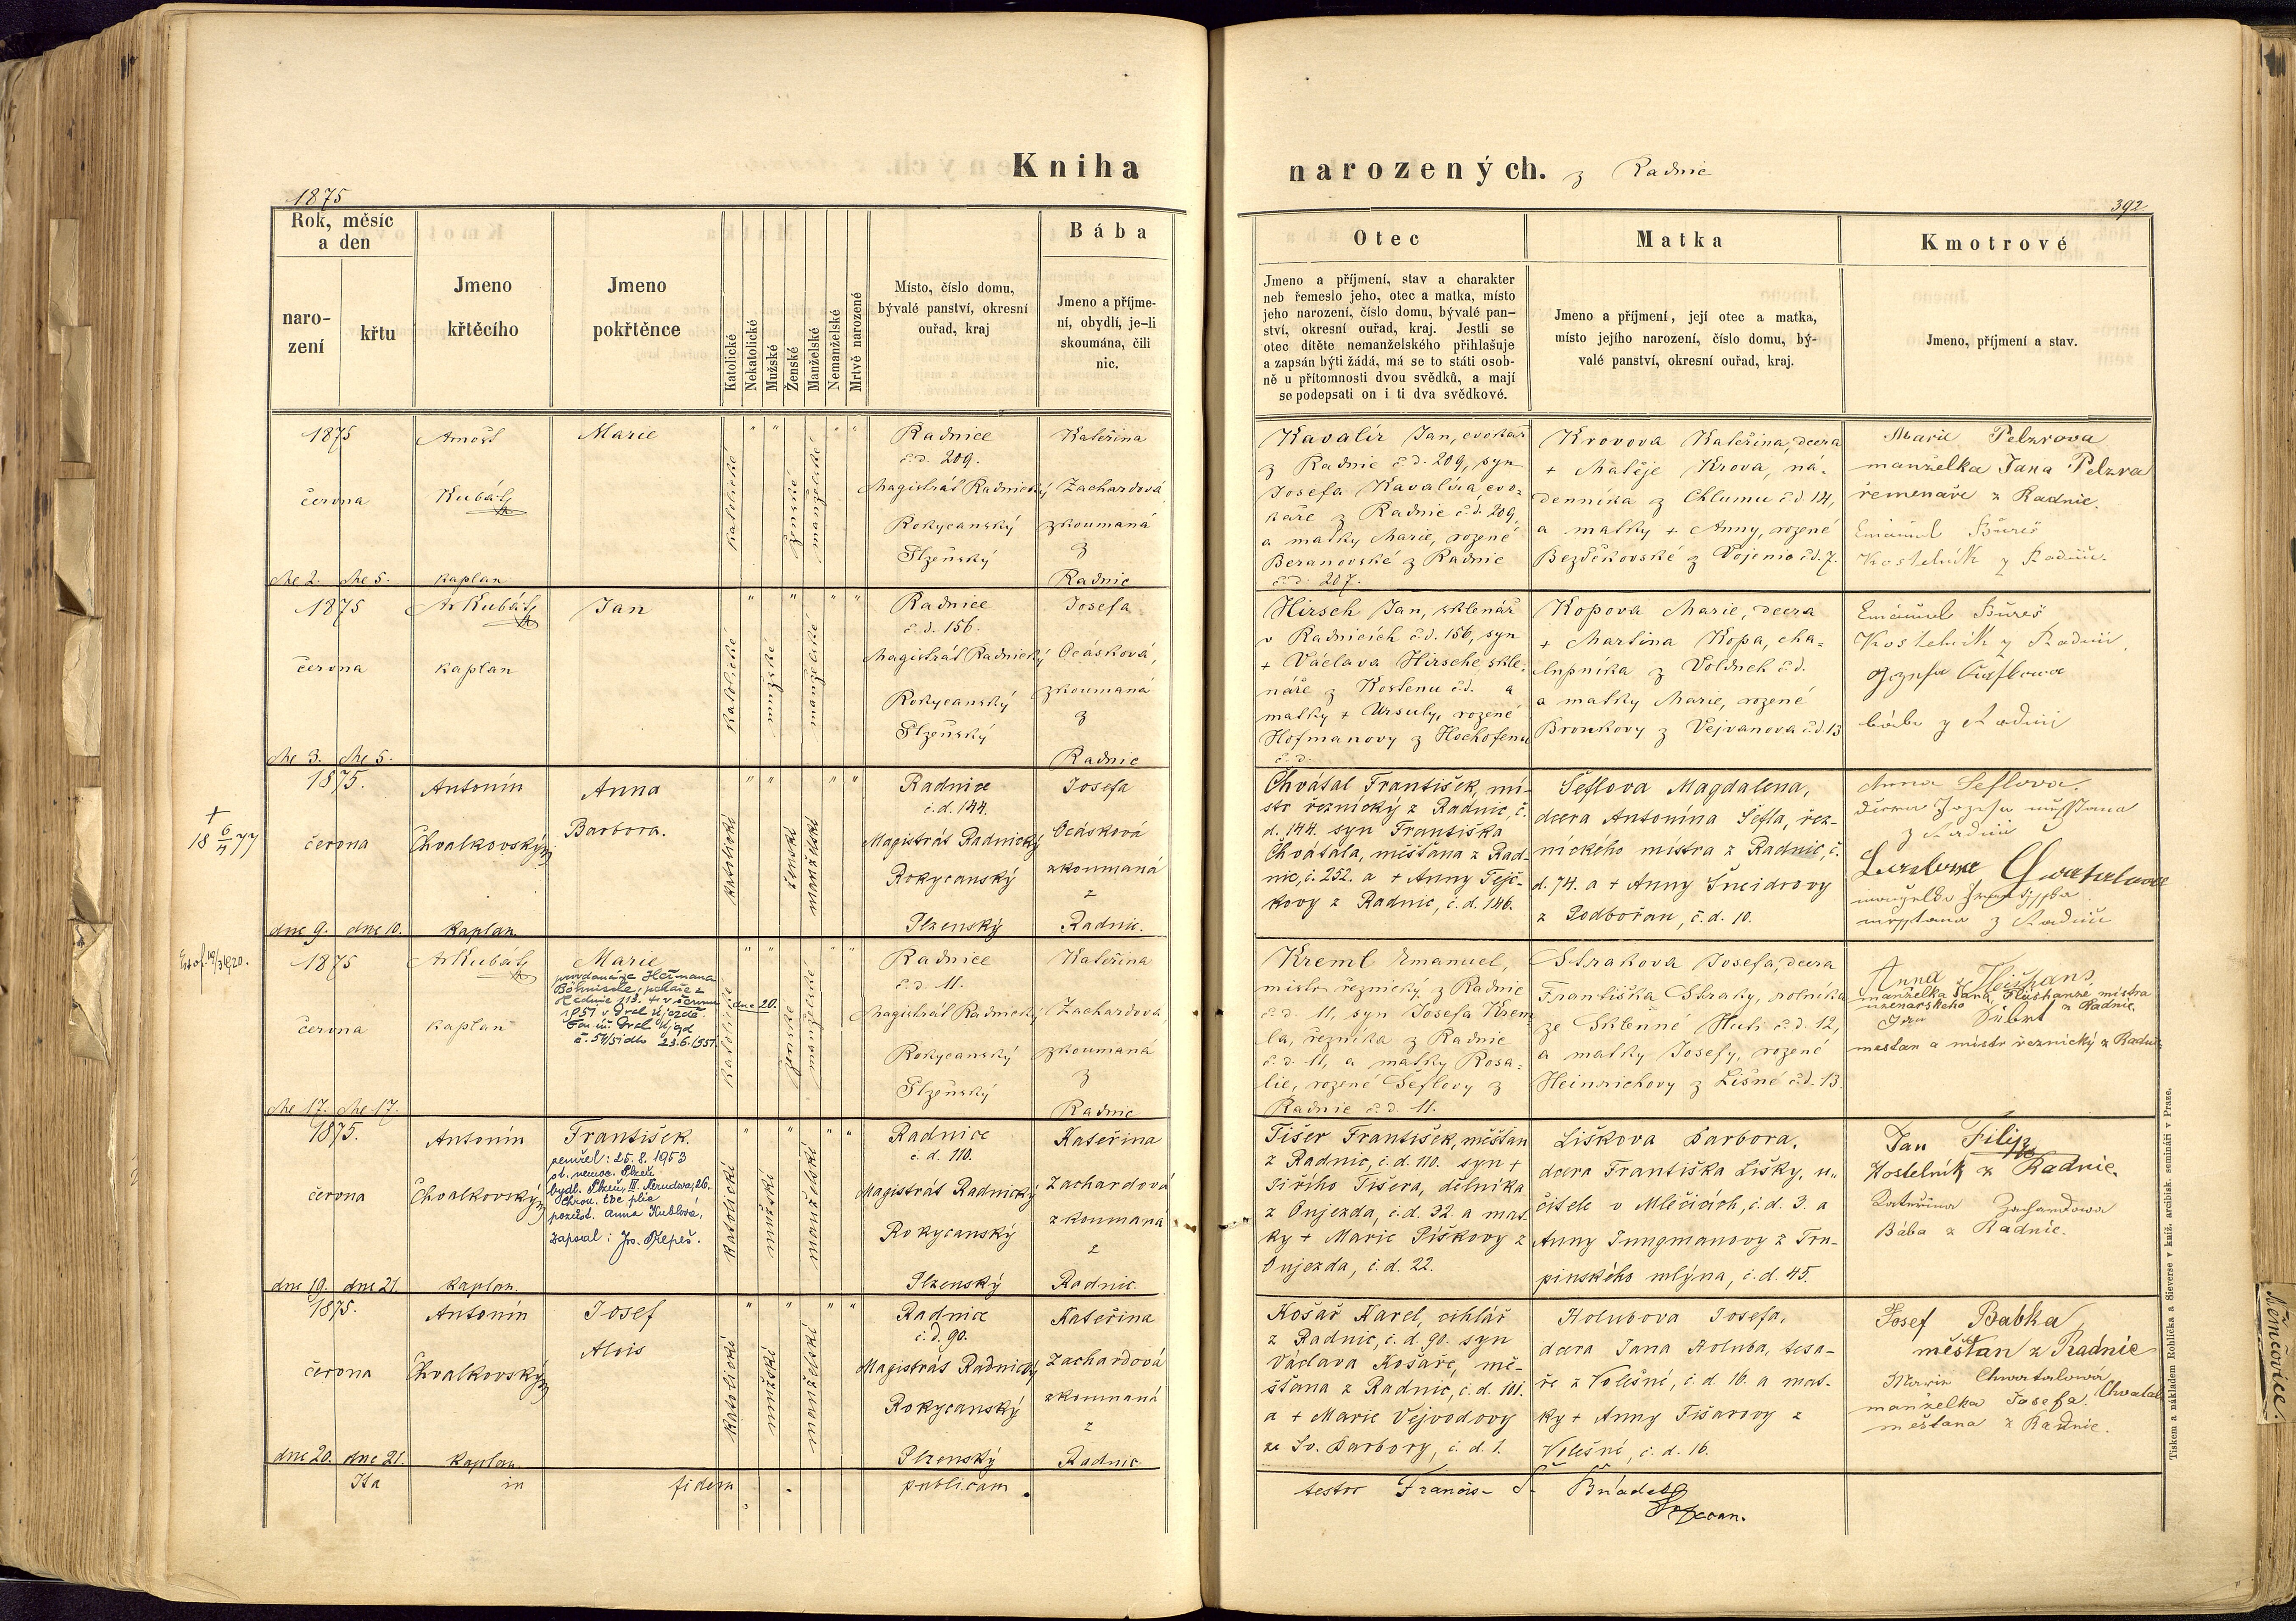 Kniha
narozených. z Radnic
1875
392
Rok, měsíc
a den
naro-
zení
křtu
Jmeno
křtěcího
Jmeno
pokřtěnce
Katolické
Nekatolické
Mužské
Ženské
Manželské
Nemanželské
Mrtvě narozené
Místo, číslo domu,
bývalé panství, okresní
ouřad, kraj
Bába
Jmeno a příjme-
ní, obydlí, je-li
skoumána, čili
nic.
Otec
Jmeno a příjmení, stav a charakter
neb řemeslo jeho, otec a matka, místo
jeho narození, číslo domu, bývalé pan-
ství, okresní ouřad, kraj. Jestli se
otec dítěte nemanželského přihlašuje
a zapsán býti žádá, má se to státi osob-
ně u přítomnosti dvou svědků, a mají
se podepsati on i ti dva svědkové.
Matka
Jmeno a příjmení, její otec a matka,
místo jejího narození, číslo domu, bý-
valé panství, okresní ouřad, kraj.
Kmotrové
Jmeno, příjmení a stav.
1875
června
dne 2. dne 5.
Arnošt
Kubátý
kaplan
Marie
katolické
ženské
manželské
Radnice
č.d. 209.
Magistrát Radnický
Rokycanský
Plzeňský
Kateřina
Zachardová
zkoumaná
z
Radnic
Kavalír Jan, cvokař
z Radnic č.d. 209, syn
Josefa Kavalíra, cvo-
kaře z Radnic č.d. 209,
a matky Marie, rozené
Beranovské z Radnic
č.d. 207.
Krovova Kateřina, dcera
+ Matěje Krova, ná-
denníka z Chlumu č.d. 14,
a matky + Anny, rozené
Bezděkovské z Vojenic č.d. 7.
Marie Pelzrova
manželka Jana Pelzra
řemenáře z Radnic.
Emanuel Bureš
Kostelník z Radnic.
1875
června
dne 3. dne 5.
Ar Kubátý
kaplan
Jan
katolické
mužské
manželské
Radnice
č.d. 156.
Magistrát Radnický
Rokycanský
Plzeňský
Josefa
Ocásková,
zkoumaná
z
Radnic
Hirsch Jan, sklenář
v Radnicích č.d. 156, syn
+ Václava Hirsche skle-
náře z Kostenu č.d. a
matky + Ursuly, rozené
Hofmanovy z Hochofenu
č.d.
Kopova Marie, dcera
+ Martina Kopa, cha-
lupníka z Volduch č.d.
a matky Marie, rozené
Bronkovy z Vejvanova č.d. 13
Emanuel Bureš
Kostelník z Radnic.
bába z Radnic
+
18 6/4 77
1875.
června
dne 9. dne 10.
Antonín
Chvalkovský
kaplan.
Anna
Barbora.
katolické
ženské
manželské
Radnice
č. d. 144.
Magistrát Radnický
Rokycanský
Plzenský
Josefa
Ocásková
zkoumaná
z
Radnic.
Chvátal František, mi-
str řeznický z Radnic, č.
d. 144. syn Františka
Chvátala, měšťana z Rad-
nic, č. 252. a + Anny Tejč-
kovy z Radnic, č. d. 146.
Šeflova Magdalena,
dcera Antonína Šefla, řez-
nického mistra z Radnic, č.
d. 74. a + Anny Šneidrovy
z Podbořan, č. d. 10.
Anna Seflova.
z Radnic
z Radnic
1875
června
dne 17. dne 17.
Ar Kubátý
kaplan
Marie
provdaná je Heřmana
katolické
dne 20.
ženské
manželské
Radnice
č.d. 11.
Magistrát Radnický
Rokycanský
Plzeňský
Kateřina
Zachardova
zkoumaná
z
Radnic
Kreml Emanuel,
mistr řeznický z Radnic
č.d. 11, syn Josefa Krem-
la, řezníka z Radnic
č.d. 11, a matky Rosa-
lie, rozené Šeflovy z
Radnic č.d. 11.
Strakova Josefa, dcera
Františka Straky, rolníka
ze Sklenné Huti č.d. 12,
a matky Josefy, rozené
Heinrichovy z Lišné č.d. 13.
manželka Jana Flišhanze mistra
uzenářského z Radnic.
mestan a mistr řeznický z Radnic
1875.
června
dne 19. dne 21.
Antonín
Chvalkovský
kaplan.
František.
zemřel: 25. 8. 1953
ob. nemoc. Plzeň
bydl. Plzeň, III. Nerudova, 26.
Chron. tbc plic
pozůst. Anna Kublová,
zapsal: Jos. Řepeš.
katolické
mužské
manželské
Radnice
č. d. 110.
Magistrát Radnický
Rokycanský
Plzenský
Kateřina
Zachardová
zkoumaná
z
Radnic.
Tišer František, měšťan
z Radnic, č. d. 110. syn +
Jiřího Tišera, dělníka
z Oujezda, č. d. 32. a mat-
ky + Marie Piškovy z
Oujezda, č. d. 22.
Liškova Barbora,
dcera Františka Lišky, u-
čitele v Mlečicích, č. d. 3. a
Anny Jungmanovy z Tru-
pinského mlýna, č. d. 45.
Jan Filip
Kostelník z Radnic.
Kateřina Zachardowa
Bába z Radnic.
1875.
června
dne 20. dne 21.
Antonín
Chvalkovský
kaplan.
Josef
Alois
katolické
mužské
manželské
Radnice
č. d. 90.
Magistrát Radnický
Rokycanský
Plzenský
Kateřina
Zachardová
zkoumaná
z
Radnic.
Košař Karel, cihlář
z Radnic, č. d. 90. syn
Václava Košaře, mě-
šťana z Radnic, č. d. 101.
a + Marie Vejvodovy
ze Sv. Barbory, č. d. 1.
Holubova Josefa,
dcera Jana Holuba, tesa-
ře z Volešné, č. d. 16. a mat-
ky + Anny Tišarovy z
Volešné, č. d. 16.
Josef Babka
měšťan z Radnic
Marie Chwatalová,
manželka Josefa Chwatala
měšťana z Radnic.
Ita in fidem publicam.
testor Francis-
Tiskem a nákladem Rohlíčka a Sieverse v kníž. arcibisk. semináři v Praze.
Němčovice.